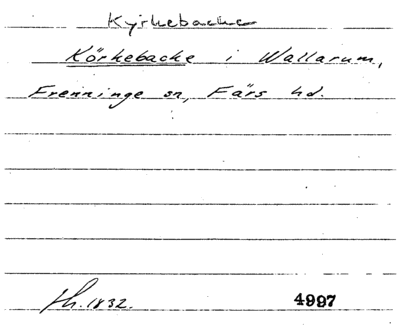 Kyrkebacke
Körkebacke i Wallarum,
Frenninge sn, Färs hd.
fh. 1832. 4997